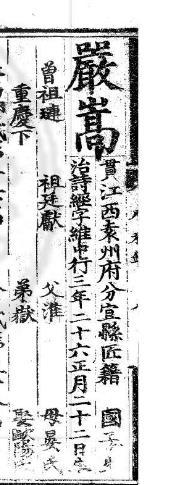 嚴嵩
貫江西袁州府分宜縣匠籍　國子生
治詩經字維中行三年二十六正月二十二日生
曾祖璉　祖廷獻　父淮　母晏氏
重慶下　弟嶽　娶歐陽氏